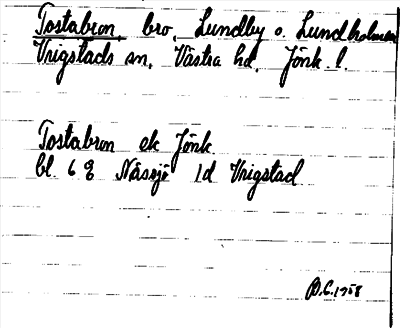 Tostabron, bro, Lundby o. Lundholmen
Vrigstads sn, Västra hd, Jönk. l.
Tostabron ek Jönk
bl. 6 g Nässjö 1d Vrigstad
B.C. 1958